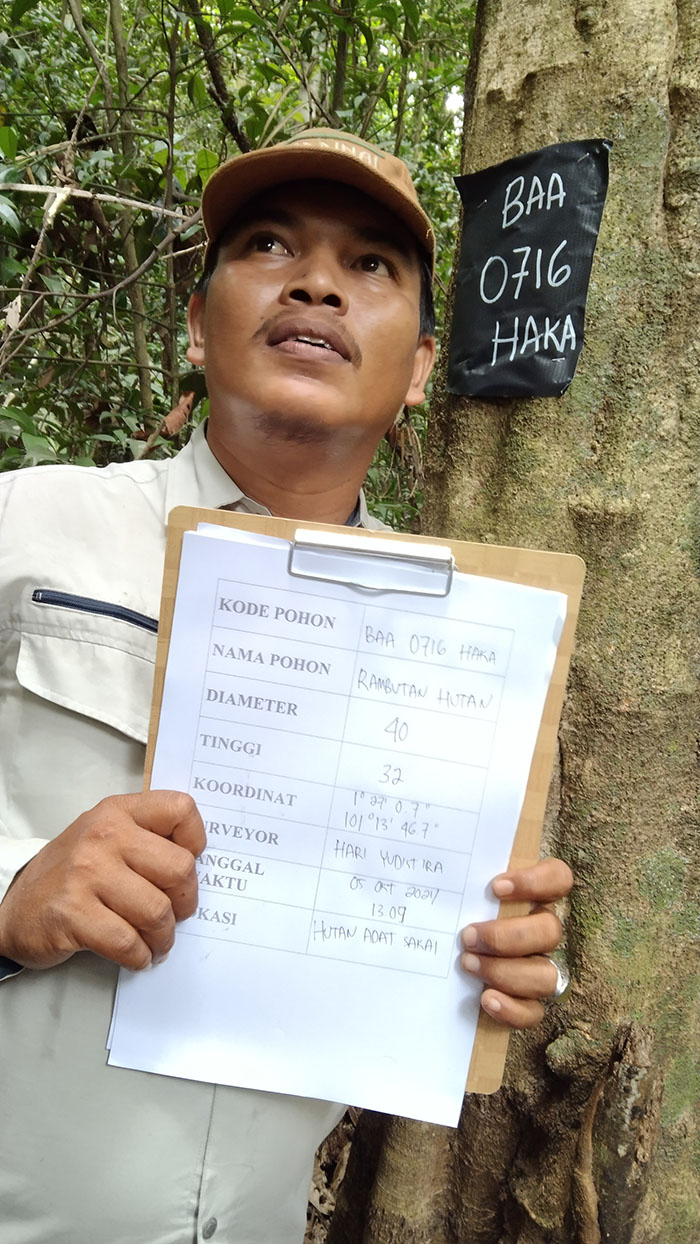 BAA
0716
HAKA
KODE POHON BAA 0716 HAKA
NAMA POHON RAMBUTAN HUTAN
DIAMETER 40
TINGGI 32
KOORDINAT 1° 27' 0.7"
101° 13' 46.7"
URVEYOR HARI YUDISTIRA
ANGGAL 05 OKT 2024
AKTU 13.09
KASI HUTAN ADAT SAKAI